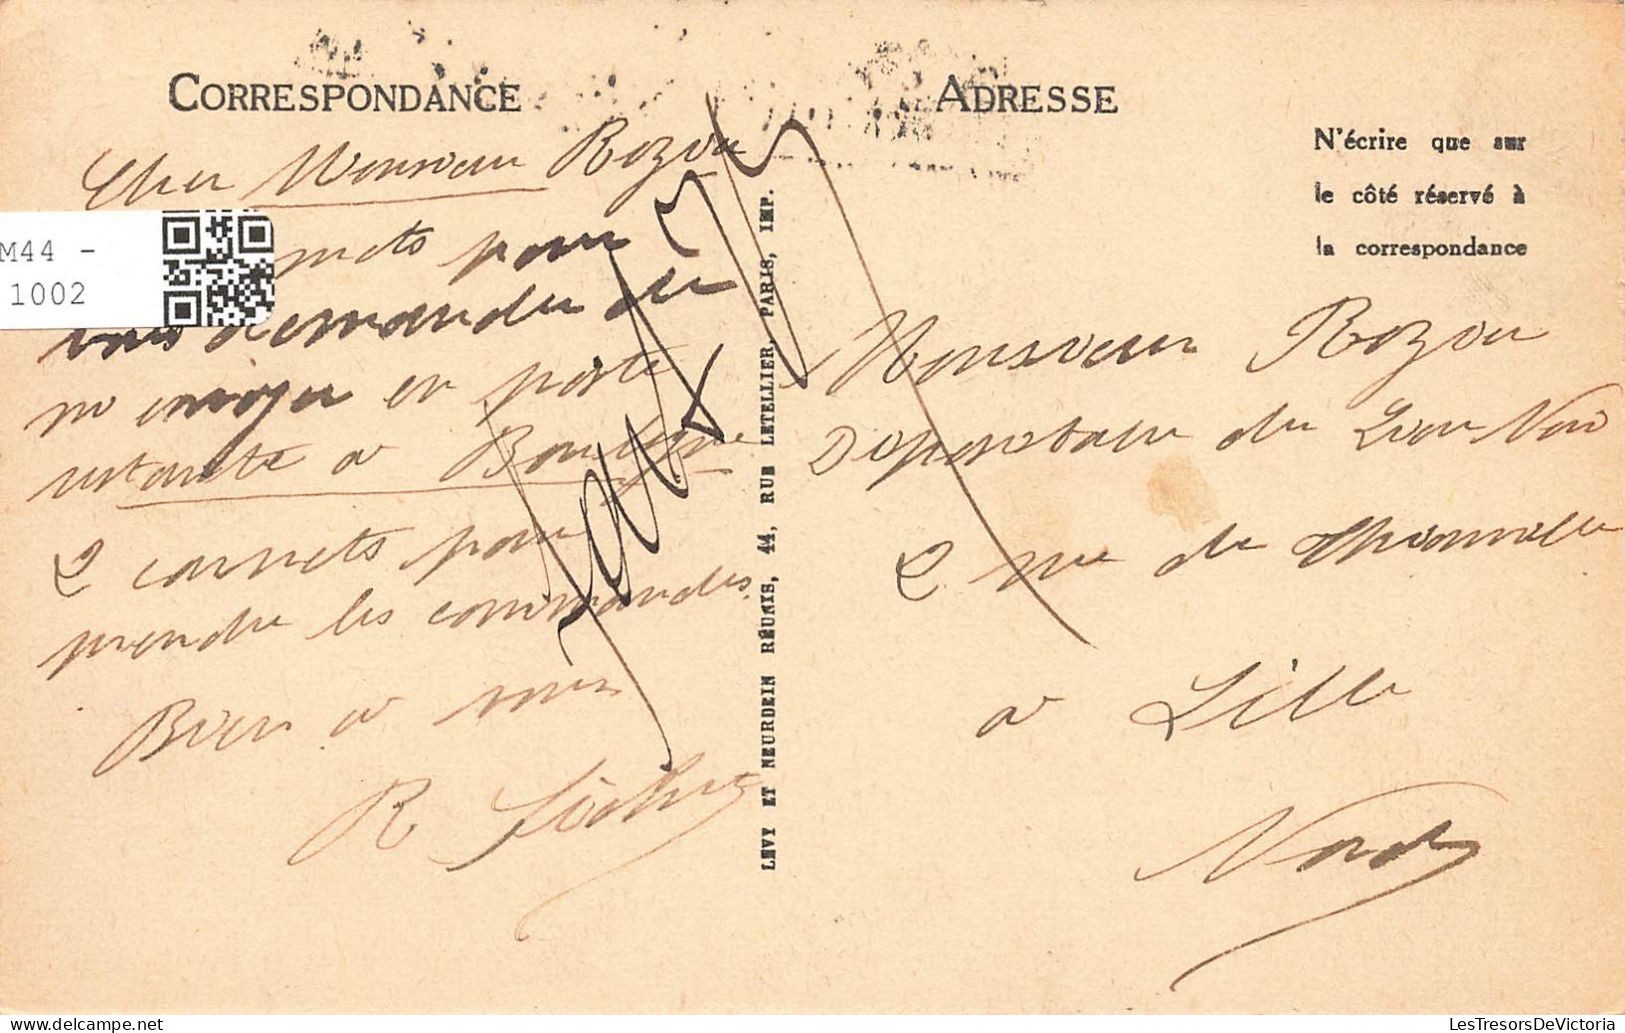 CORRESPONDANCE
Cher Monsieur Rozou
mots pour
vous demander de
m envoyer en poste
restante a Boulogne
2 carnets pour
prendre les commandes.
Bien a vous
R
M44 -
1002
LÉVY ET NEURDEIN RÉUNIS, 44, RUE LETELLIER, PARIS, IMP.
ADRESSE
N'écrire que sur
le côté réservé à
la correspondance
Monsieur Rozou
Depositaire du Lion Noir
2 rue de Thionville
a Lille
Nord
LesTresorsDeVictoria